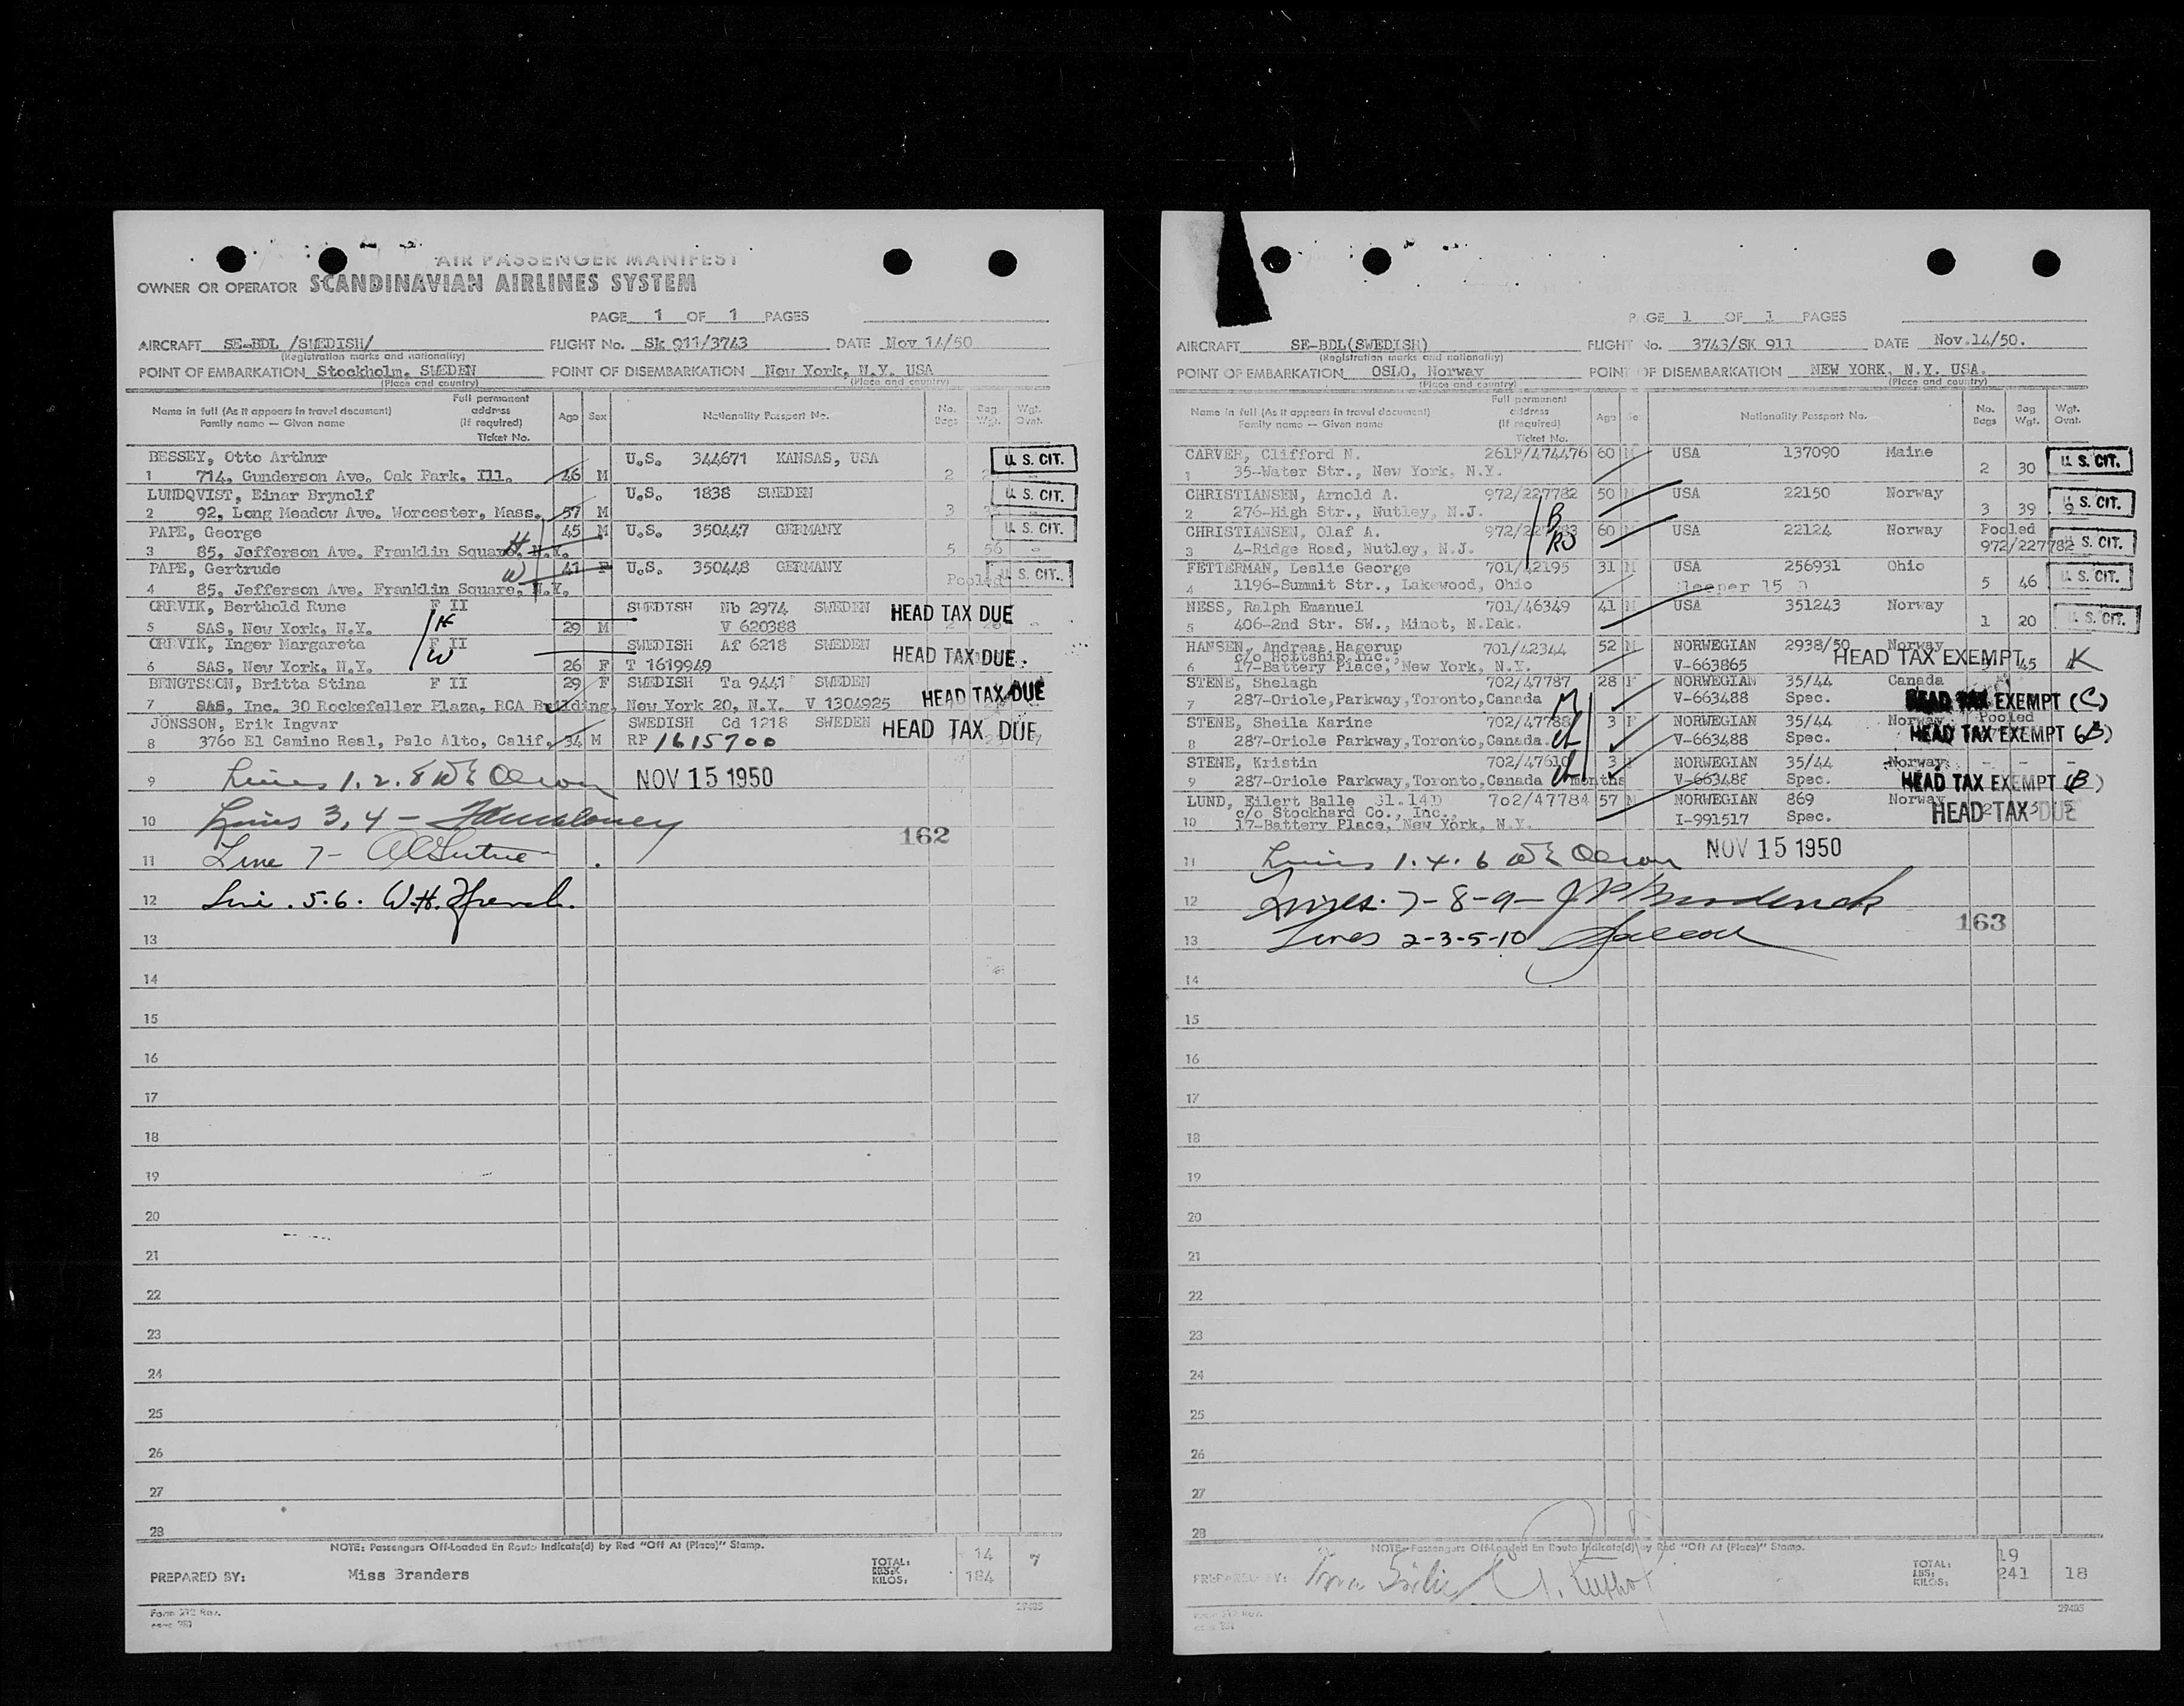 AIR PASSENGER MANIFEST
OWNER OR OPERATOR SCANDINAVIAN AIRLINES SYSTEM
PAGE 1 OF 1 PAGES
AIRCRAFT SE-BDL /SWEDISH/ FLIGHT No. Sk 911/3743 DATE Nov 14/50
(Registration marks and nationality)
POINT OF EMBARKATION Stockholm, SWEDEN POINT OF DISEMBARKATION New York, N.Y. USA
(Place and country) (Place and country)
Name in full (As it appears in travel document) Family name — Given name Full permanent address (if required) Ticket No. Age Sex Nationality Passport No. No. Bags Bag Wgt. Wgt. Ovnt.
BESSEY, Otto Arthur U.S. 344671 KANSAS, USA U. S. CIT.
1 714, Gunderson Ave. Oak Park, Ill. 46 M 2
LUNDQVIST, Einar Brynolf U.S. 1838 SWEDEN U. S. CIT.
2 92, Long Meadow Ave. Worcester, Mass. 57 M 3
PAPE, George 45 M U.S. 350447 GERMANY U. S. CIT.
3 85, Jefferson Ave. Franklin Square, N.Y. H 5 56 -
PAPE, Gertrude 41 F U.S. 350448 GERMANY Pooled U. S. CIT.
4 85, Jefferson Ave. Franklin Square, N.Y. W
ORRVIK, Berthold Rune F II SWEDISH Nb 2974 SWEDEN HEAD TAX DUE
5 SAS, New York, N.Y. H 29 M V 620388
ORRVIK, Inger Margareta F II SWEDISH Af 6218 SWEDEN HEAD TAX DUE.
6 SAS, New York, N.Y. W 26 F T 1619949
BENGTSSON, Britta Stina F II 29 F SWEDISH Ta 9441 SWEDEN HEAD TAX DUE
7 SAS, Inc. 30 Rockefeller Plaza, RCA Building, New York 20, N.Y. V 1304925
JÖNSSON, Erik Ingvar SWEDISH Cd 1218 SWEDEN HEAD TAX DUE
8 3760 El Camino Real, Palo Alto, Calif. 34 M RP 1615700
9 Lines 1. 2. 8 W E Olson NOV 15 1950
10 Lines 3, 4 -
162
11 Line 7 -
12 Line . 5.6. W.H. French.
13
14
15
16
17
18
19
20
21
22
23
24
25
26
27
28
NOTE: Passengers Off-Loaded En Route Indicate(d) by Red "Off At (Place)" Stamp.
PREPARED BY: Miss Branders TOTAL: LBS: KILOS. 14 184 7
Form 212 Rev. 27405
PAGE 1 OF 1 PAGES
AIRCRAFT SE-BDL(SWEDISH) FLIGHT No. 3743/SK 911 DATE Nov.14/50.
(Registration marks and nationality)
POINT OF EMBARKATION OSLO, Norway POINT OF DISEMBARKATION NEW YORK, N.Y. USA.
(Place and country) (Place and country)
Name in full (As it appears in travel document) Family name — Given name Full permanent address (if required) Ticket No. Age Se Nationality Passport No. No. Bags Bag Wgt. Wgt. Ovnt.
CARVER, Clifford N. 261P/474476 60 M USA 137090 Maine U. S. CIT.
1 35-Water Str., New York, N.Y. 2 30
CHRISTIANSEN, Arnold A. 972/227782 50 M USA 22150 Norway U. S. CIT.
2 276-High Str., Nutley, N.J. B 3 39 9
CHRISTIANSEN, Olaf A. 972/227783 60 M USA 22124 Norway Pooled U. S. CIT.
3 4-Ridge Road, Nutley, N.J. 972/227782
FETTERMAN, Leslie George 701/42195 31 M USA 256931 Ohio U. S. CIT.
4 1196-Summit Str., Lakewood, Ohio Sleeper 15 D 5 46
NESS, Ralph Emanuel 701/46349 41 M USA 351243 Norway U. S. CIT.
5 406-2nd Str. SW., Minot, N.Dak. 1 20
HANSEN, Andreas Hagerup 701/42344 52 M NORWEGIAN 2938/50 Norway
c/o Nottship Inc., HEAD TAX EXEMPT K
6 17-Battery Place, New York, N.Y. V-663865 45
STENE, Shelagh 702/47787 28 F NORWEGIAN 35/44 Canada
7 287-Oriole,Parkway,Toronto,Canada M V-663488 Spec. HEAD TAX EXEMPT (C)
STENE, Sheila Karine 702/47788 3 F NORWEGIAN 35/44 Norway Pooled
8 287-Oriole Parkway,Toronto,Canada. ch V-663488 Spec. HEAD TAX EXEMPT (B)
STENE, Kristin 702/47610 3 F NORWEGIAN 35/44 Norway - - -
9 287-Oriole Parkway,Toronto,Canada ch months V-663488 Spec. HEAD TAX EXEMPT (B)
LUND, Eilert Balle Sl.14D 7o2/47784 57 M NORWEGIAN 869 Norway
c/o Stockhard Co., Inc., HEAD TAX DUE
10 17-Battery Place, New York, N.Y. I-991517 Spec.
11 Lines 1. 4. 6 W E Olson NOV 15 1950
12 Lines. 7 - 8 - 9 -
163
13 Lines 2-3-5-10
14
15
16
17
18
19
20
21
22
23
24
25
26
27
28
NOTE: Passengers Off-Loaded En Route Indicate(d) by Red "Off At (Place)" Stamp.
PREPARED BY: TOTAL: LBS: KILOS: 19 241 18
Form 212 Rev. 27405